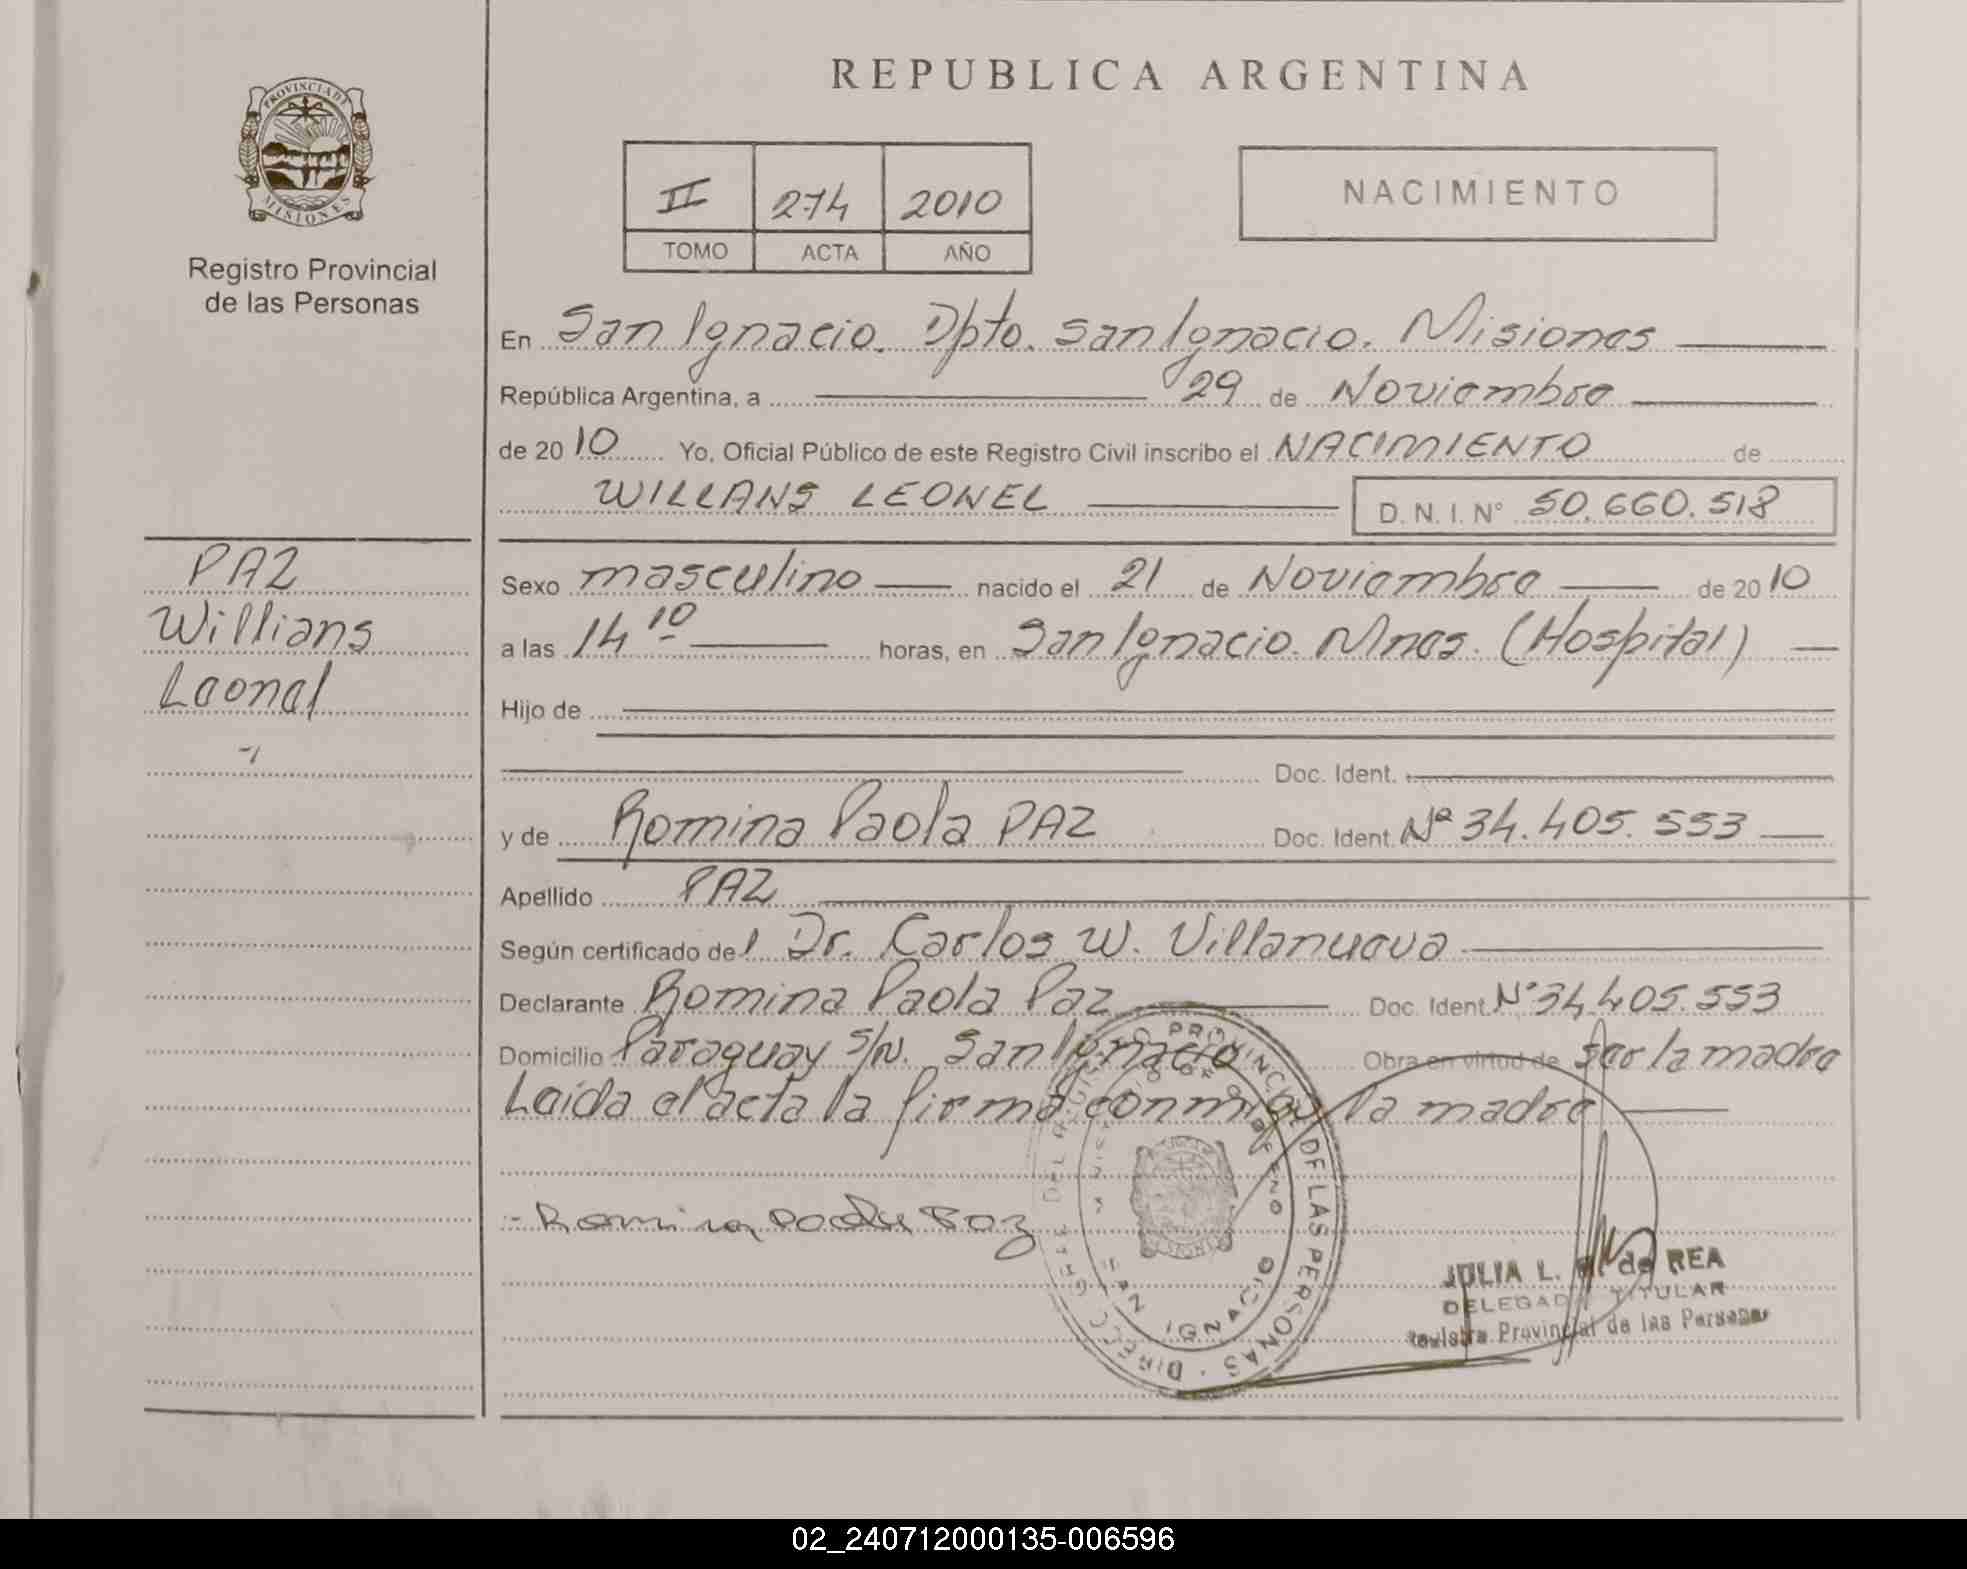 PROVINCIA DE
MISIONES
Registro Provincial
de las Personas
REPUBLICA ARGENTINA
II 274 2010
TOMO ACTA AÑO
NACIMIENTO
En San Ignacio. Dpto. San Ignacio. Misiones
República Argentina, a 29 de Noviembre
de 2010 Yo, Oficial Público de este Registro Civil inscribo el NACIMIENTO de
WILLANS LEONEL D. N. I. N° 50.660.518
PAZ
Willians
Leonel
Sexo masculino nacido el 21 de Noviembre de 2010
a las 14 10 horas, en San Ignacio. Mnes. (Hospital)
Hijo de
Doc. Ident.
y de Romina Paola PAZ Doc. Ident. Nº 34.405.553
Apellido PAZ
Según certificado del Dr. Carlos W. Villanueva
Declarante Romina Paola Paz Doc. Ident. N° 34.405.553
Domicilio Paraguay S/N. San Ignacio Obra en virtud de ser la madre
Leída el acta la firma conmigo la madre
Romina Paola Paz
PROVINCIAL DE LAS PERSONAS · DIREC. GRAL. DEL
SAN IGNACIO
JULIA L. de REA
DELEGADA TITULAR
Registro Provincial de las Personas
02_240712000135-006596